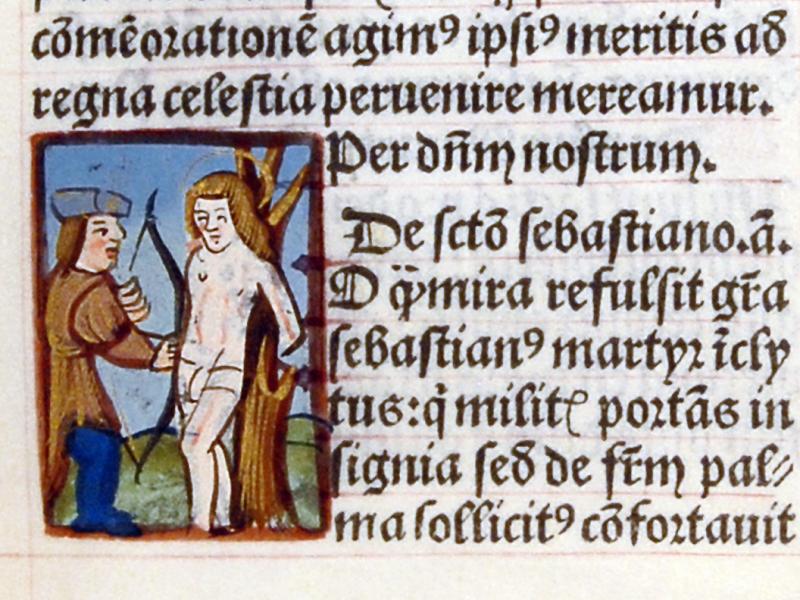 cōmēoratione̅ agimꝰ ipſiꝰ meritis ad
regna celeſtia peruenire mereamur.
Per dn̄m noſtrum.
De ſctō ſebaſtiano. a̅.
O q̈̄mira refulſit gr̄a
ſebaſtianꝰ martyꝛ īcly
tus: q̇ militꝭ portās in
ſignia ſed de fr̄m pal⸗
ma ſollicitꝰ cōfoꝛtauit